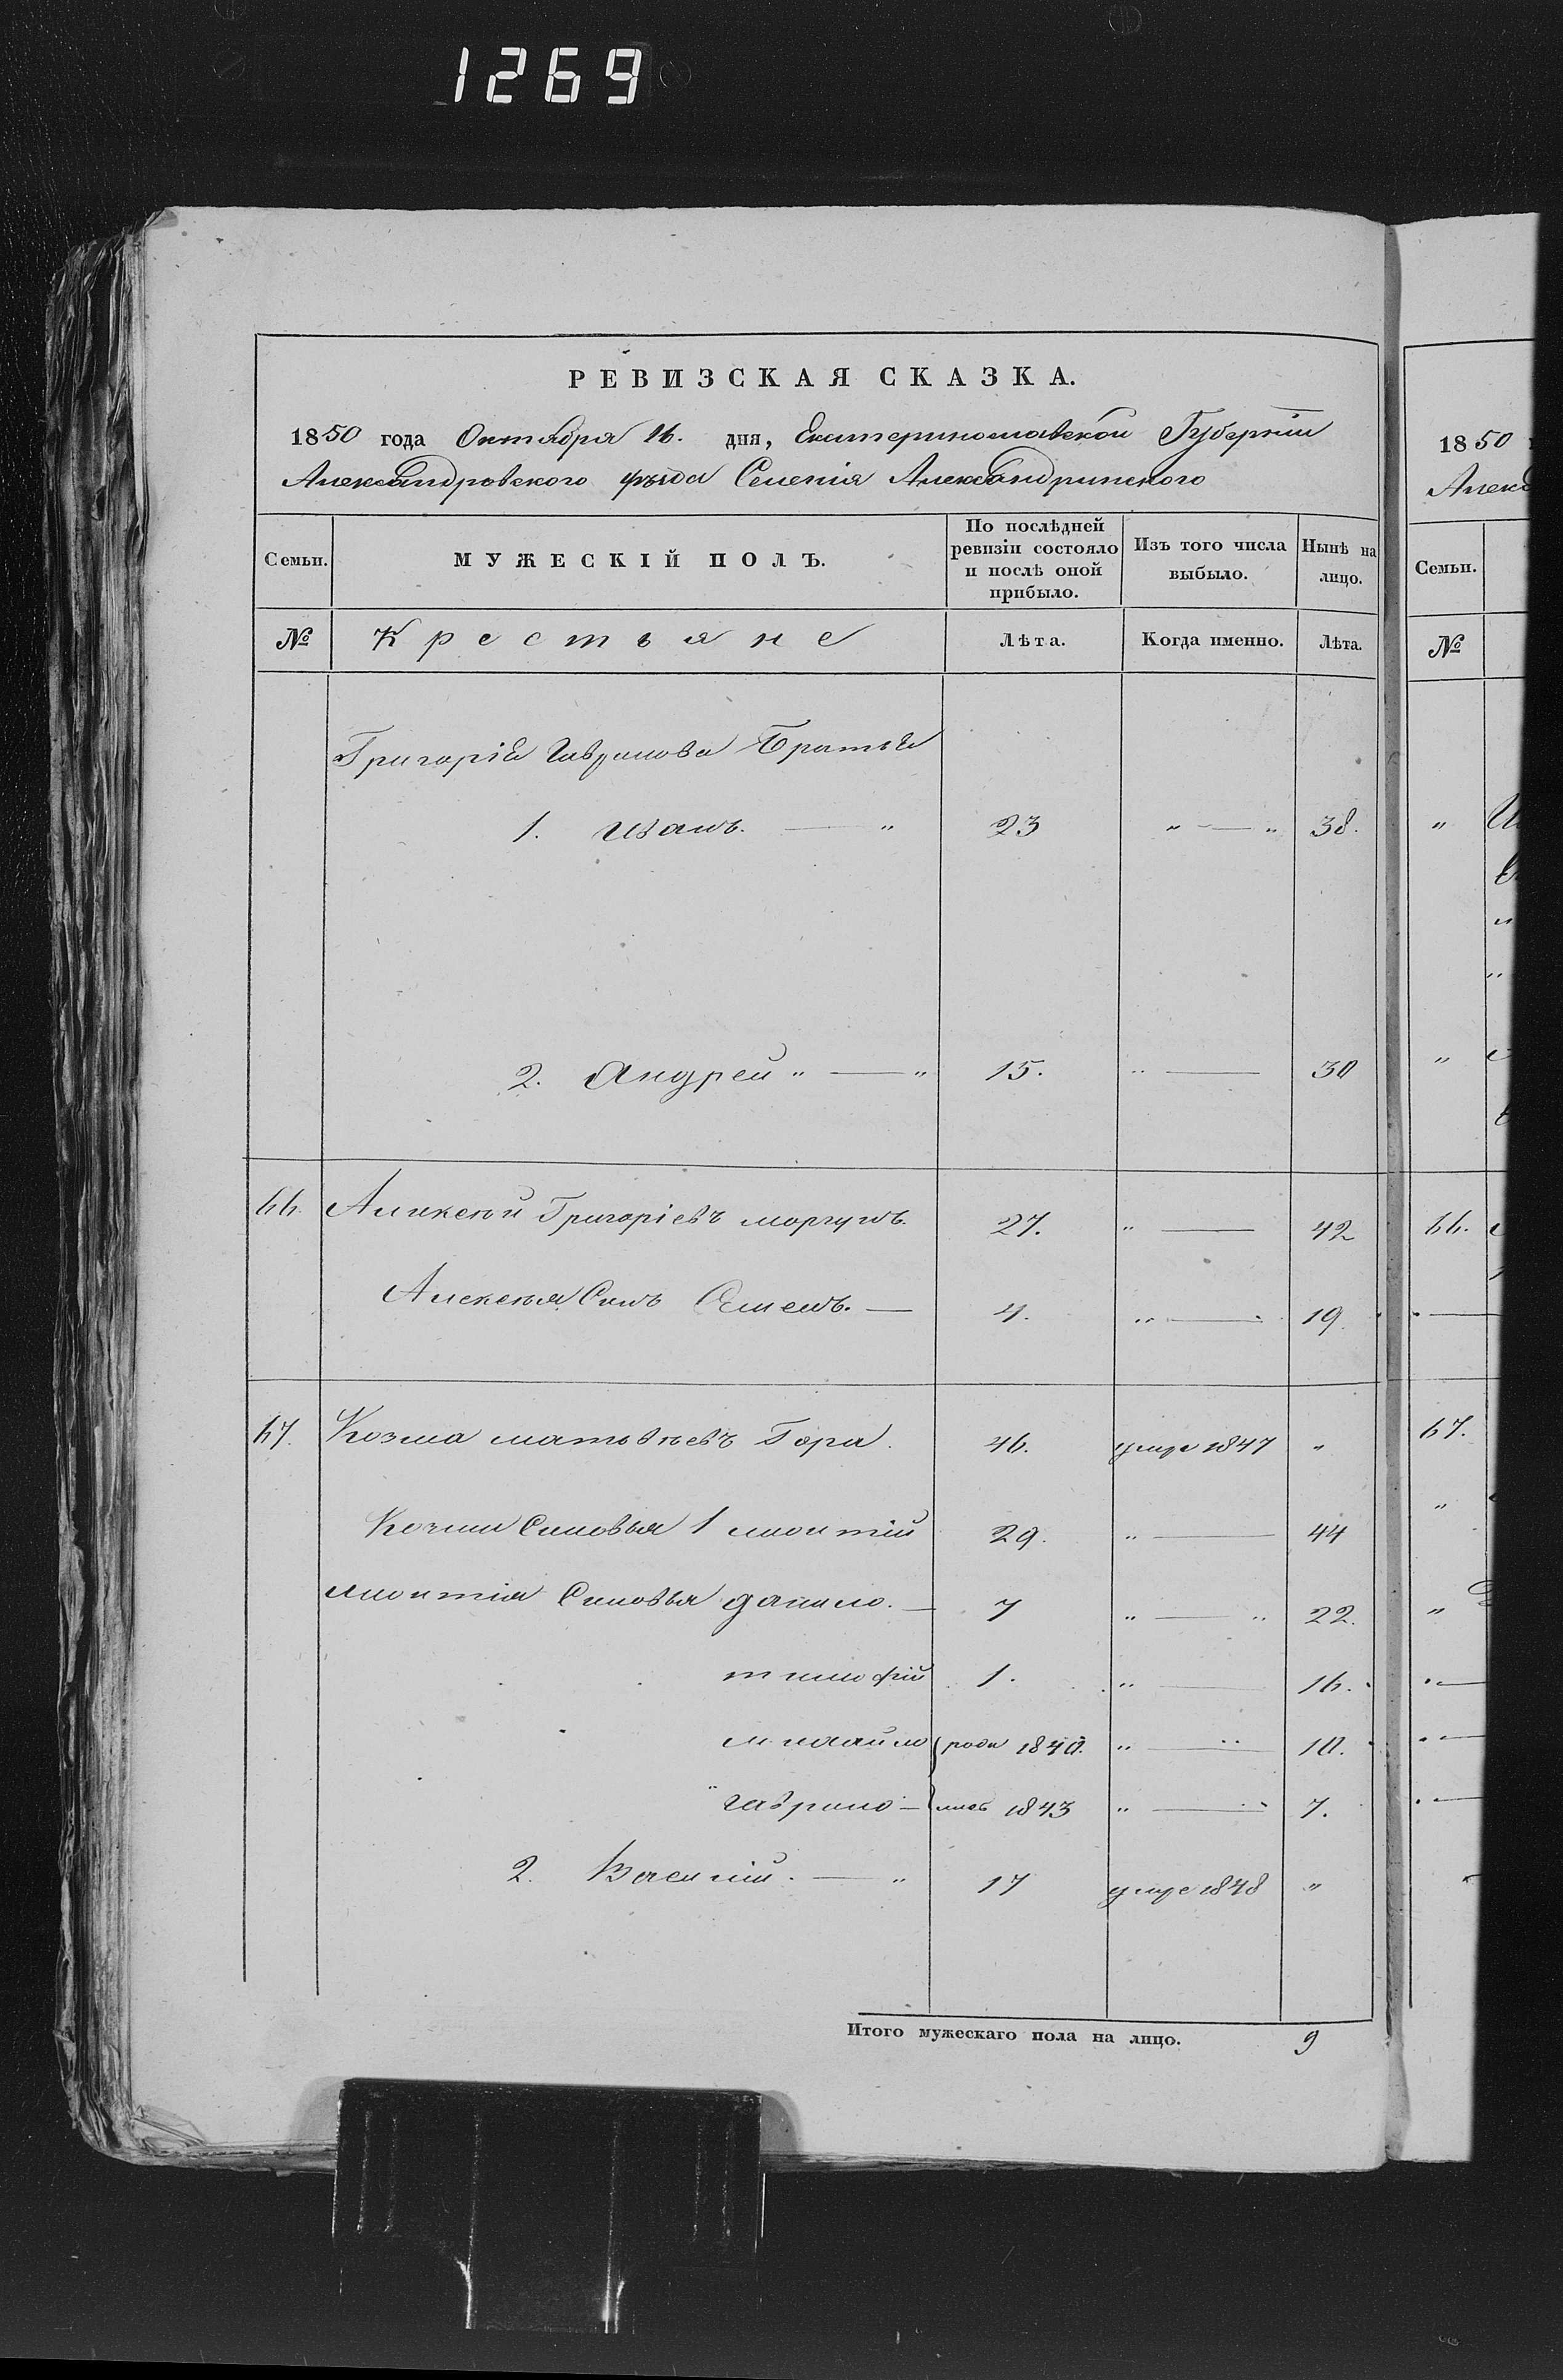 1269
РЕВИЗСКАЯ СКАЗКА.
1850 года Октября 16. дня, Екатеринославской Губерніи
Александровского уѣзда Селенія Александринского
Семьи. МУЖЕСКІЙ ПОЛЪ. По послѣдней ревизіи состояло и послѣ оной прибыло. Изъ того числа выбыло. Нынѣ на лицо.
№ Крестьяне Лѣта. Когда именно. Лѣта.
Григорія Гаврилова Братья
1. Иванъ. — " 23 " — " 38.
2. Андрей " — " 15. " — 30
66. Алексѣй Григоріевъ Моргунъ. 27. " — 42
Алексѣя Сынъ Семенъ. — 4. " — 19.
67. Козма Матвѣевъ Гора. 46. умре 1847 "
Козмы Сыновья 1 Леонтій 29. " — 44
Леонтія Сыновья Данило. — 7 " — " 22.
Тимофій 1. " — 16.
Михайло роди 1840. " — 10.
Гаврило — лись 1843 " — 7.
2. Василій. — " 17 умре 1848 "
Итого мужескаго пола на лицо. 9
1850
Алекс
Семьи.
№
66.
67.